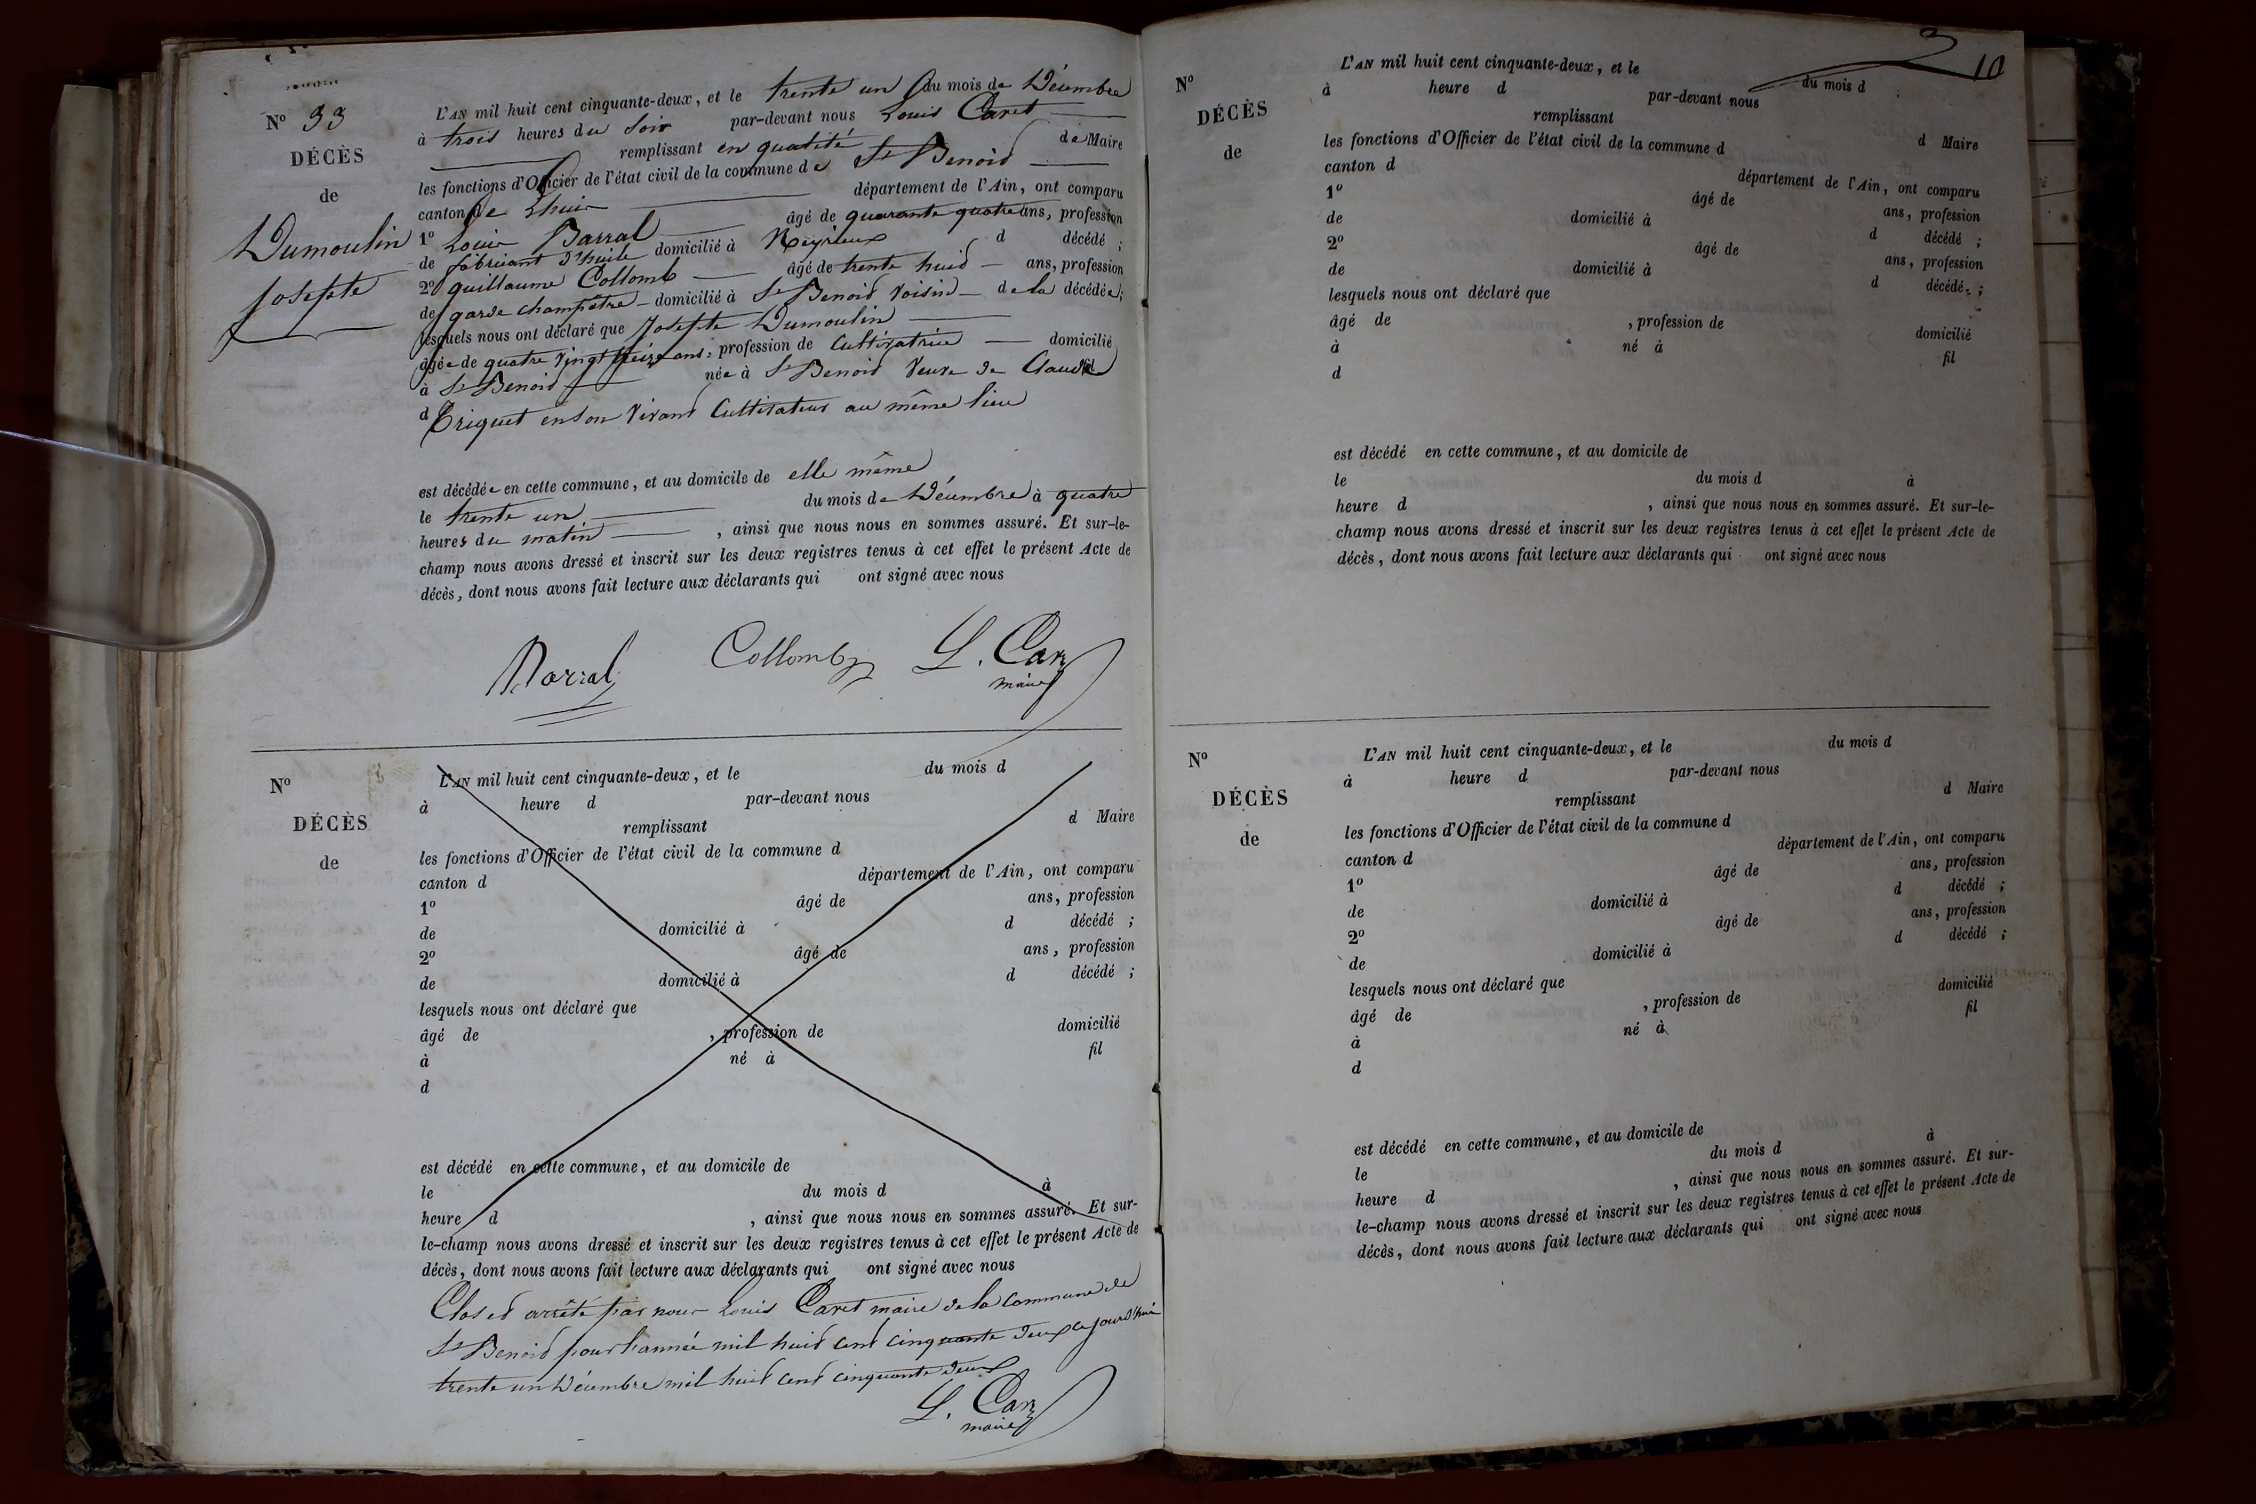 Nº 33
DÉCÈS
de
Dumoulin
Josephte
L'AN mil huit cent cinquante-deux, et le trente un du mois de Décembre
à trois heures du soir par-devant nous Louis Caret
remplissant en qualité de Maire
les fonctions d'Officier de l'état civil de la commune de St Benoid
canton de Lhuis département de l'Ain, ont comparu
1º Louis Barral âgé de quarante quatre ans, profession
de fabricant d'huile domicilié à Neyrieux d décédé ;
2º guillaume Collomb âgé de trente huid ans, profession
de garde champêtre domicilié à St Benoid voisin de la décédée ;
lesquels nous ont déclaré que Josephte Dumoulin
âgée de quatre vingt treize ans, profession de Cultivatrice domicilié
à St Benoid née à St Benoid veuve de Claude fil
d Triquet en son vivant Cultivateur au même lieu
est décédée en cette commune, et au domicile de elle même
le trente un du mois de Décembre à quatre
heures du matin , ainsi que nous nous en sommes assuré. Et sur-le-
champ nous avons dressé et inscrit sur les deux registres tenus à cet effet le présent Acte de
décès, dont nous avons fait lecture aux déclarants qui ont signé avec nous
Barral Collomb L. Caret
maire
Nº
DÉCÈS
de
L'AN mil huit cent cinquante-deux, et le du mois d
à heure d par-devant nous
remplissant d Maire
les fonctions d'Officier de l'état civil de la commune d
canton d département de l'Ain, ont comparu
1º âgé de ans, profession
de domicilié à d décédé ;
2º âgé de ans, profession
de domicilié à d décédé ;
lesquels nous ont déclaré que
âgé de , profession de domicilié
à né à fil
d
est décédé en cette commune, et au domicile de
le du mois d à
heure d , ainsi que nous nous en sommes assuré. Et sur-
le-champ nous avons dressé et inscrit sur les deux registres tenus à cet effet le présent Acte de
décès, dont nous avons fait lecture aux déclarants qui ont signé avec nous
Clos et arrêté par nous Louis Caret maire de la commune de
St Benoid pour l'année mil huid cent cinquante deux ce jourd'hui
trente un Décembre mil huid cent cinquante deux
L. Caret
maire
10
Nº
DÉCÈS
de
L'AN mil huit cent cinquante-deux, et le du mois d
à heure d par-devant nous
remplissant d Maire
les fonctions d'Officier de l'état civil de la commune d
canton d département de l'Ain, ont comparu
1º âgé de ans, profession
de domicilié à d décédé ;
2º âgé de ans, profession
de domicilié à d décédé ;
lesquels nous ont déclaré que
âgé de , profession de domicilié
à né à fil
d
est décédé en cette commune, et au domicile de
le du mois d à
heure d , ainsi que nous nous en sommes assuré. Et sur-le-
champ nous avons dressé et inscrit sur les deux registres tenus à cet effet le présent Acte de
décès, dont nous avons fait lecture aux déclarants qui ont signé avec nous
Nº
DÉCÈS
de
L'AN mil huit cent cinquante-deux, et le du mois d
à heure d par-devant nous
remplissant d Maire
les fonctions d'Officier de l'état civil de la commune d
canton d département de l'Ain, ont comparu
1º âgé de ans, profession
de domicilié à d décédé ;
2º âgé de ans, profession
de domicilié à d décédé ;
lesquels nous ont déclaré que
âgé de , profession de domicilié
à né à fil
d
est décédé en cette commune, et au domicile de
le du mois d à
heure d , ainsi que nous nous en sommes assuré. Et sur-
le-champ nous avons dressé et inscrit sur les deux registres tenus à cet effet le présent Acte de
décès, dont nous avons fait lecture aux déclarants qui ont signé avec nous